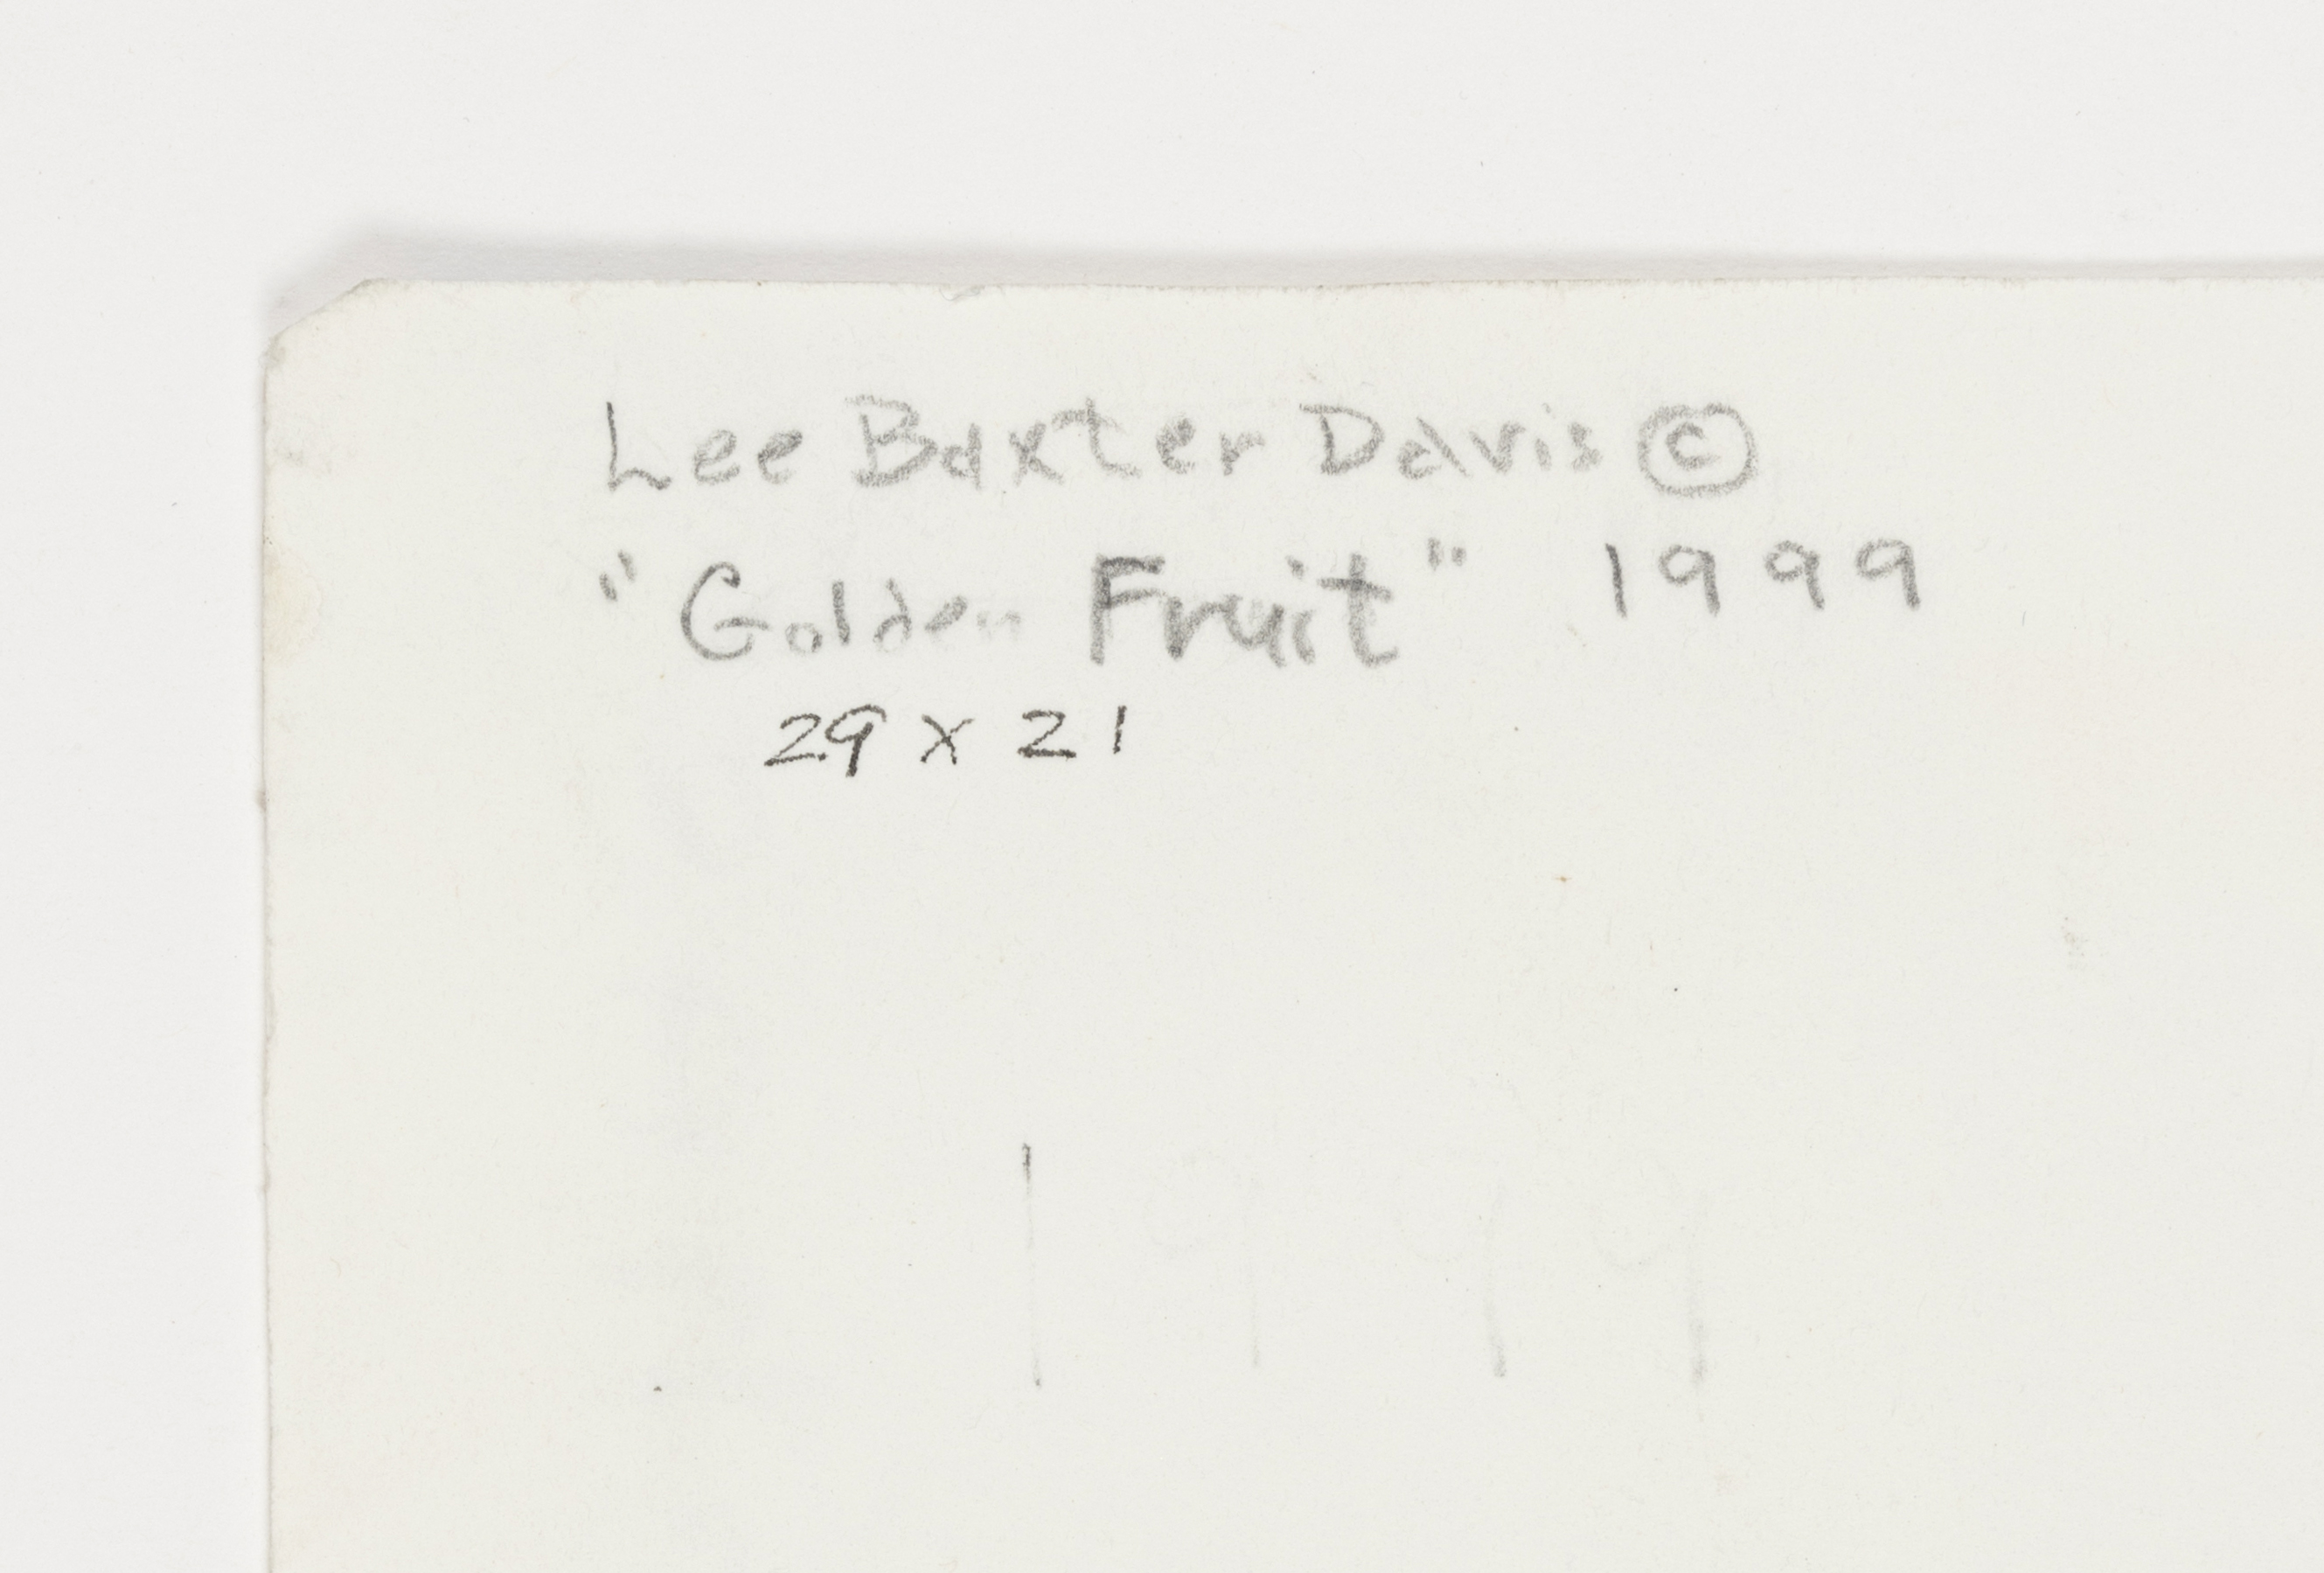 Lee Baxter Davis ©
"Golden Fruit" 1999
29 x 21
1999